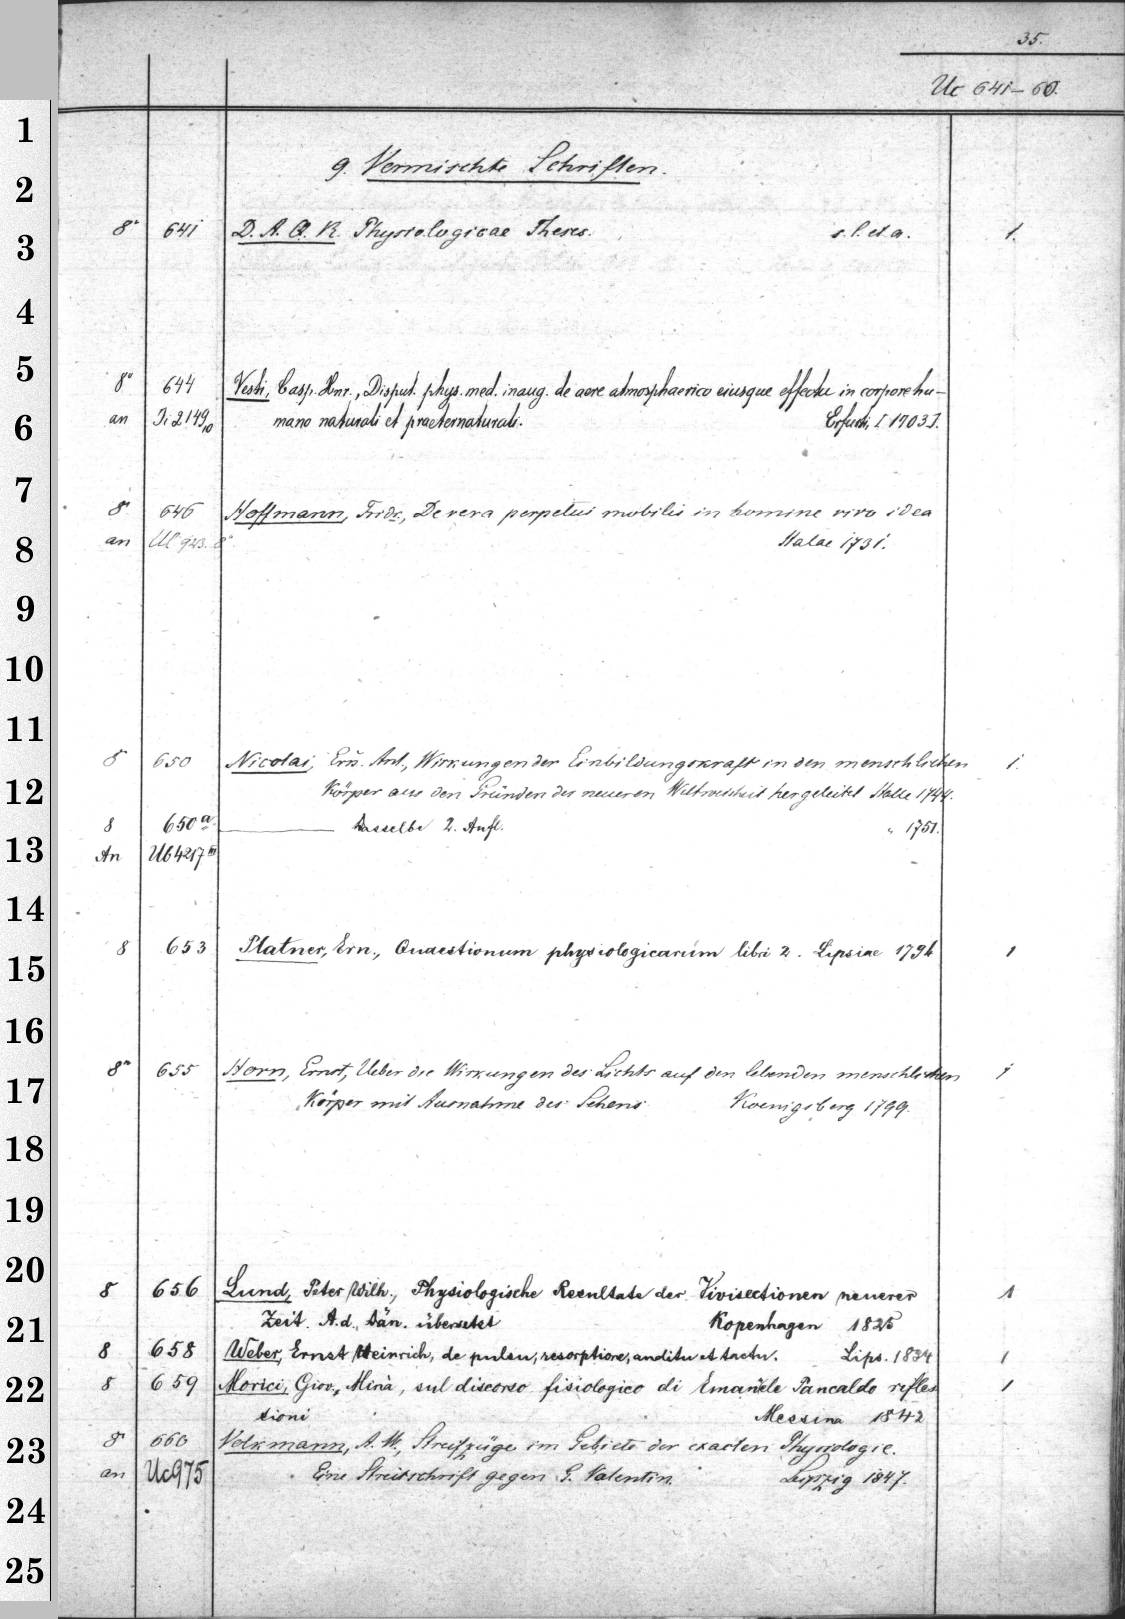 35.
Uc 641-60.
1
g. Vermischte Schriften.
2
8° 641 D. A. Q. R. Physiologicae Theses. s. l. et a. 1.
3
4
5
8° 644 Vesti, Casp. Hnr., Disput. phys. med. inaug. de aere atmosphaerico eiusque effectu in corpore hu-
6
an Ji 2149,10 mano naturali et praeternaturali. Erfurti, [1703].
7
8° 646 Hoffmann, Fridr., De vera perpetui mobilis in homine vivo idea
8
an Ul 923. 8° Halae 1731.
9
10
11
8 650 Nicolai, Ern. Ant., Wirkungen der Einbildungskraft in den menschlichen 1.
12
Körper aus den Gründen der neueren Weltweisheit hergeleitet Halle 1744.
8 650 a. Dasselbe 2. Aufl. " 1751.
13
An Ub4217 m
14
8 653 Platner, Ern., Quaestionum physiologicarum libri 2. Lipsiae 1794 1
15
16
8° 655 Horn, Ernst, Ueber die Wirkungen des Lichts auf den lebenden menschlichen 1
17
Körper mit Ausnahme des Sehens Koenigsberg 1799.
18
19
20
8 656 Lund, Peter Wilh., Physiologische Resultate der Vivisectionen neuerer 1
21
Zeit. A. d. Dän. übersetzt Kopenhagen 1825
8 658 Weber, Ernst Heinrich, de pulsu, resorptione, auditu et tactu. Lips. 1834 1
22
8 659 Morici, Giov., Minà, sul discorso fisiologico di Emanuele Pancaldo rifles 1
sioni Messina 1842
23
8° 660 Volkmann, A. W., Streifzüge im Gebiete der exacten Physiologie.
an Uc975 Eine Streitschrift gegen G. Valentin. Leipzig 1847.
24
25